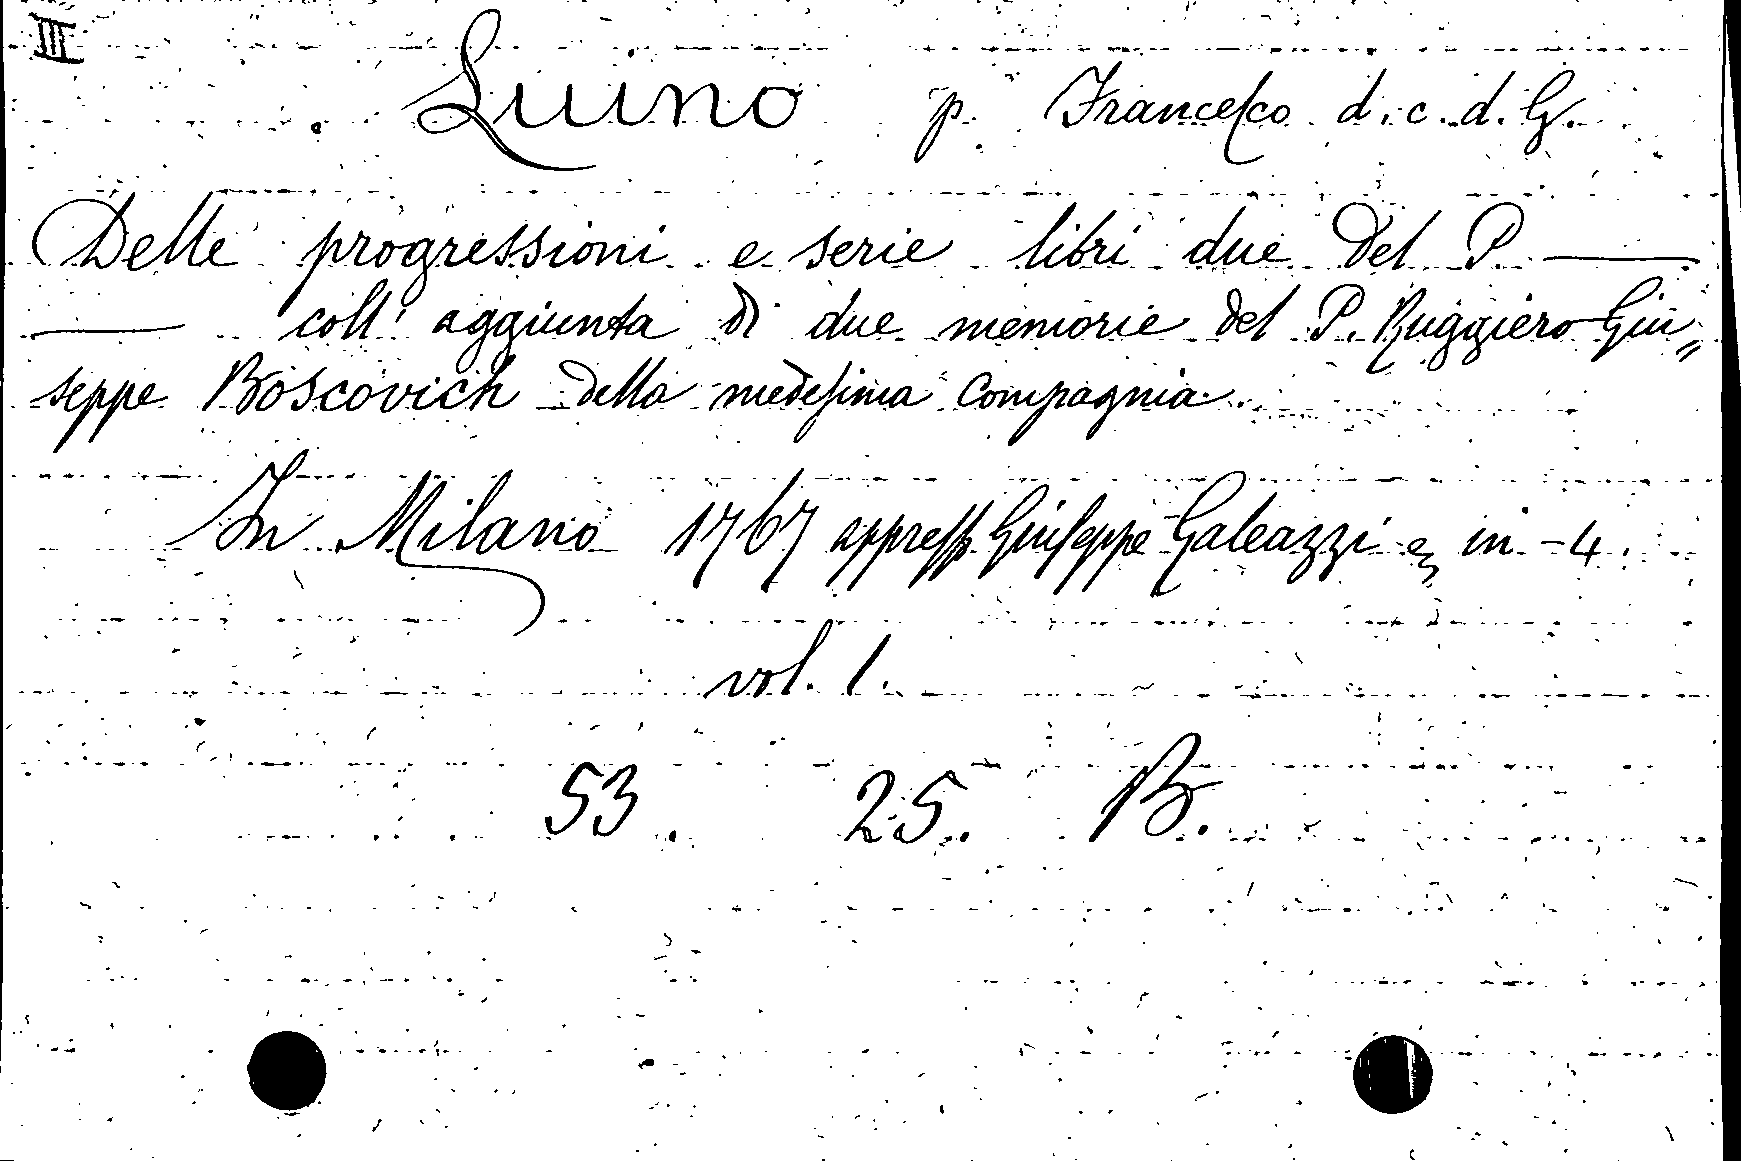 III
Luino p. Francesco d. c. d. G.
Delle progressioni e serie libri due del P. ———
——— coll' aggiunta di due memorie del P. Ruggiero Giu„
seppe Boscovich della medesima Compagnia.
In Milano 1767 appresso Giuseppe Galeazzi in-4.
vol. 1.
53. 25. B.